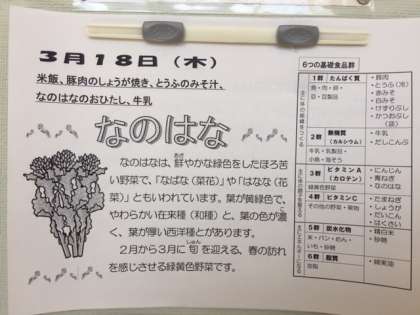 3月18日（木）
米飯、豚肉のしょうが焼き、とうふのみそ汁、
なのはなのおひたし、牛乳
なのはな
なのはなは、鮮やかな緑色をしたほろ苦
あざ
い野菜で、「なばな（菜花）」や「はなな（花
菜）」ともいわれています。葉が黄緑色で、
やわらかい在来種（和種）と、葉の色が濃
く、葉が厚い西洋種とがあります。
2月から3月に旬を迎える、春の訪れ
しゅん
を感じさせる緑黄色野菜です。
6つの基礎食品群
1群 たんぱく質
魚・肉・卵・
豆・豆製品
・豚肉
・とうふ（冷）
・赤みそ
・白みそ
・けずりぶし
・かつおぶし
2群 無機質
（カルシウム）
牛乳・乳製品・
小魚・海そう
・牛乳
・だしこんぶ
3群 ビタミンA
（カロテン）
緑黄色野菜
・にんじん
・青ねぎ
・なのはな
4群 ビタミンC
その他の野菜・果物
・たまねぎ
・しょうが
・だいこん
・はくさい
5群 炭水化物
米・パン・めん・
いも・砂糖
・精白米
・砂糖
6群 脂質
油脂
・綿実油